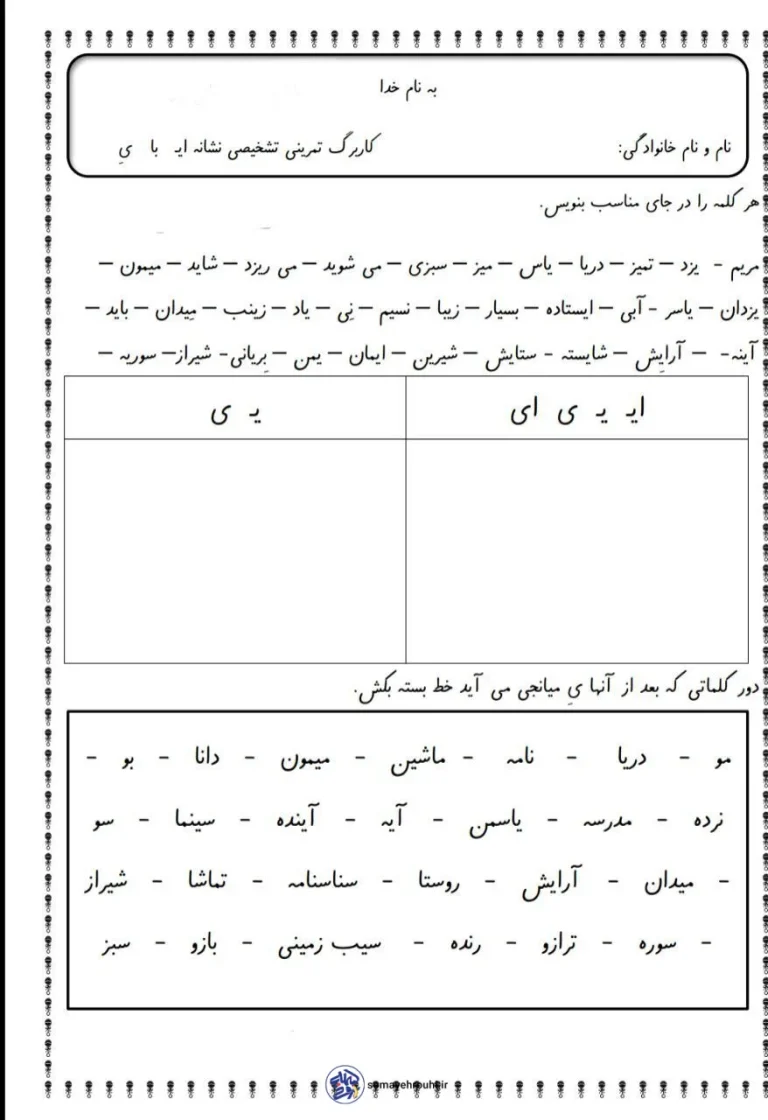 به نام خدا
نام و نام خانوادگی: کاربرگ تمرینی تشخیصی نشانه ایـ با یِ
هر کلمه را در جای مناسب بنویس.
مریم - یزد – تمیز – دریا – یاس – میز – سبزی – می شوید – می ریزد – شاید – میمون –
یزدان – یاسر - آبی – ایستاده – بسیار – زیبا – نسیم – نِی – یاد – زینب – مِیدان – باید –
آینه- – آرایِش – شایسته - ستایش – شیرین – ایمان – یمن – بِریانی- شیراز– سوریه –
ایـ یـ ی ای
یـ ی
دور کلماتی که بعد از آنها یِ میانجی می آید خط بسته بکش.
مو - دریا - نامه - ماشین - میمون - دانا - بو -
نرده - مدرسه - یاسمن - آیه - آینده - سینما - سو
- میدان - آرایش - روستا - سناسنامه - تماشا - شیراز
- سوره - ترازو - رنده - سیب زمینی - بازو - سبز